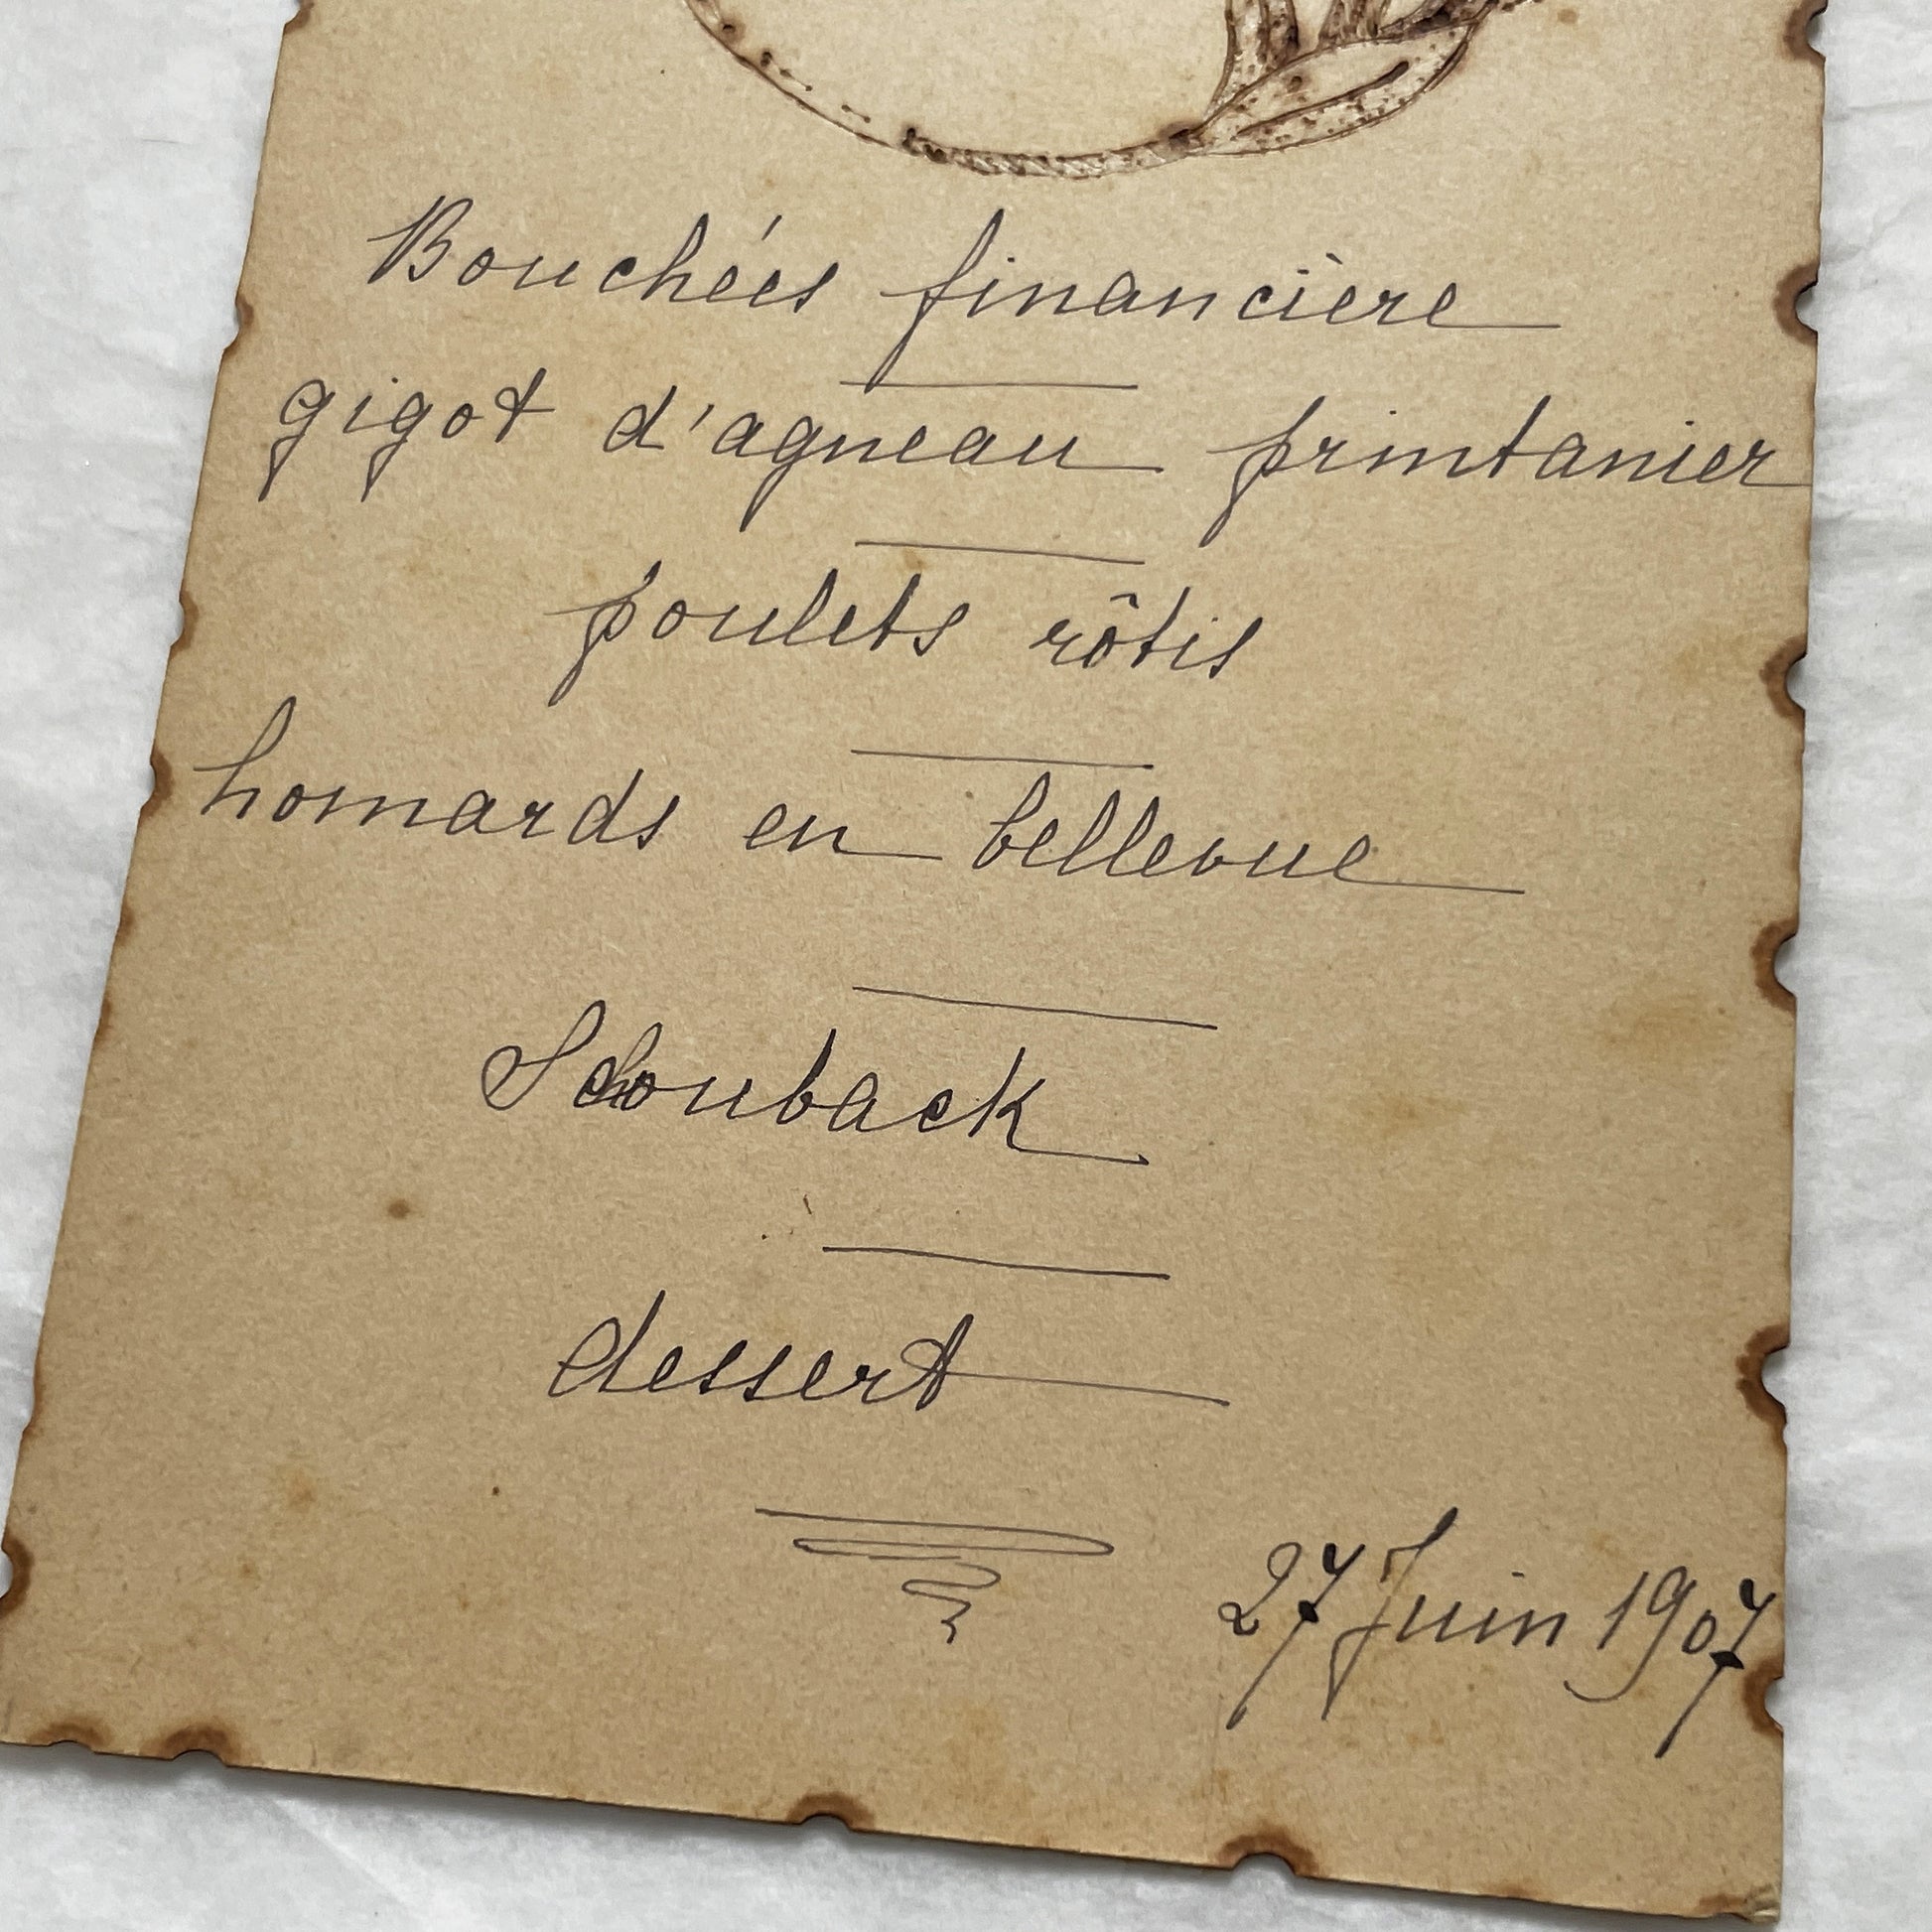 Bouchées financière
gigot d'agneau printanier
poulets rôtis
homards en bellevue
Schouback
dessert
27 Juin 1907